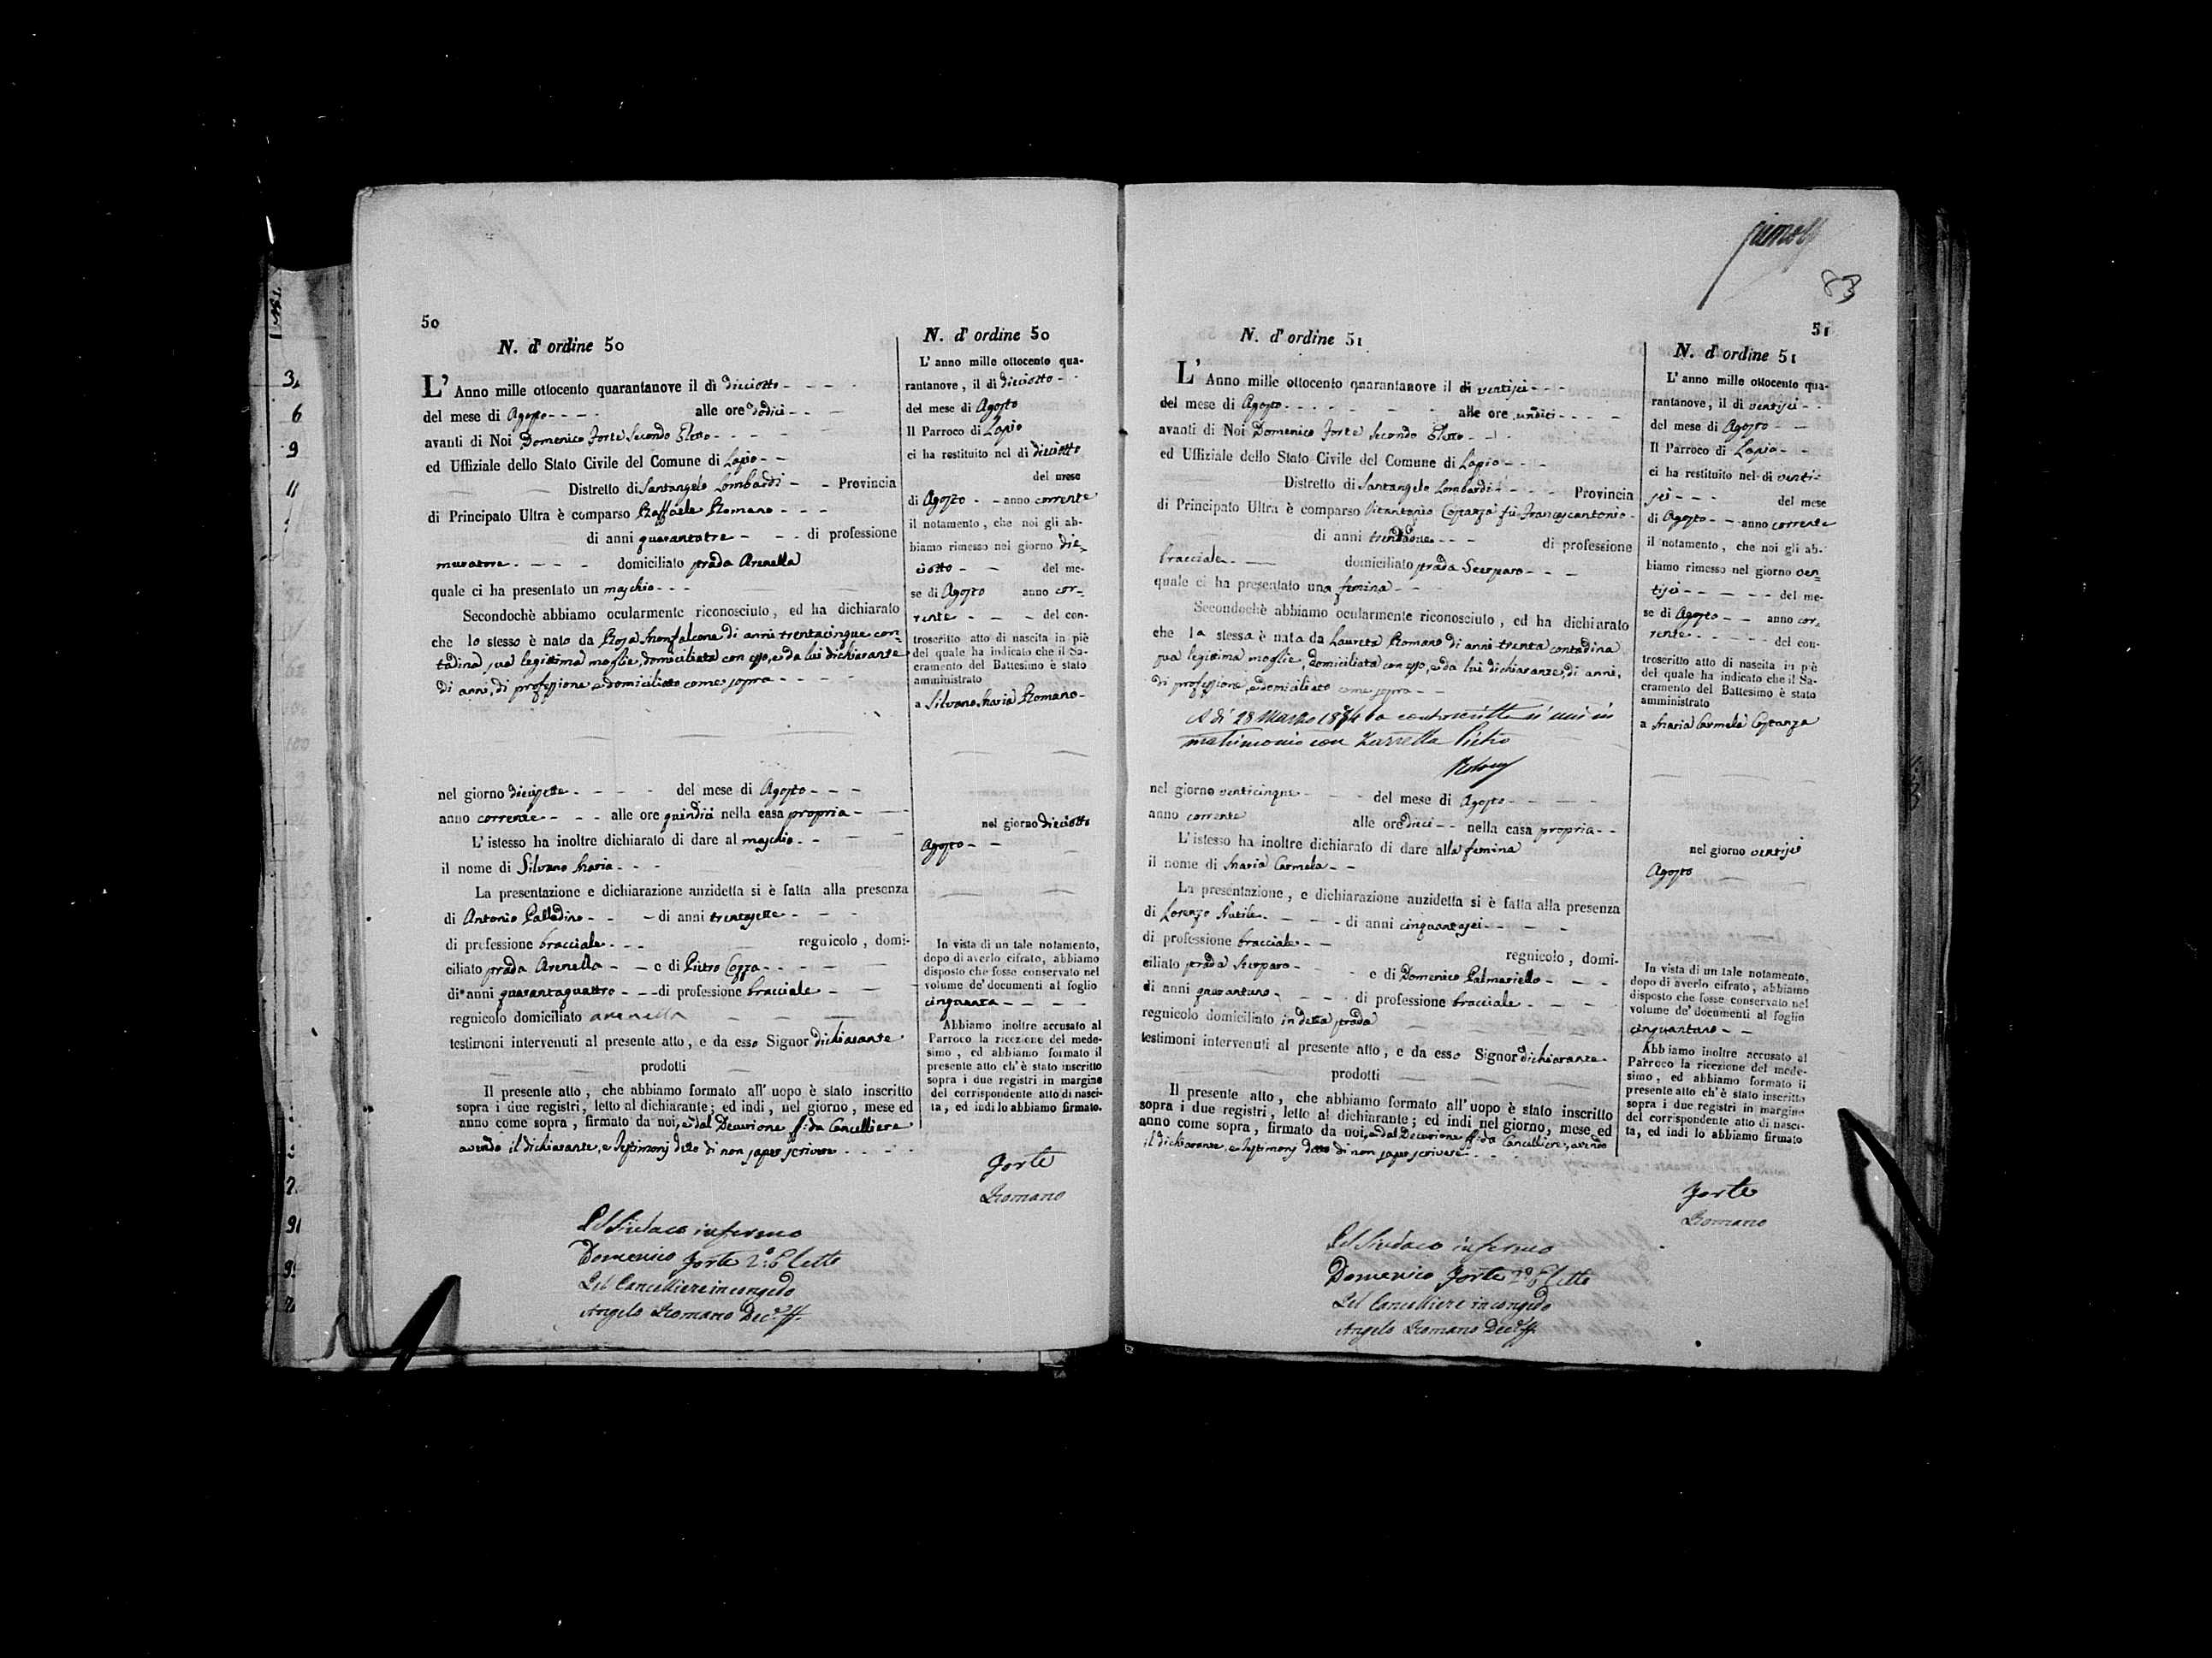 50
N. d'ordine 50
L'Anno mille ottocento quarantanove il dì diciotto
del mese di Agosto alle ore dodici
avanti di Noi Domenico Forte Secondo Eletto
ed Uffiziale dello Stato Civile del Comune di Lapio
Distretto di Santangelo Lombardi Provincia
di Principato Ultra è comparso Raffaele Romano
di anni quarantatre di professione
muratore domiciliato strada Arenella
quale ci ha presentato un maschio
Secondochè abbiamo ocularmente riconosciuto, ed ha dichiarato
che lo stesso è nato da Rosa Monfalcone di anni trentacinque con-
tadina sua legittima moglie, domiciliata con esso, e da lui dichiarante
di anni, di professione e domiciliato come sopra
nel giorno diciisette del mese di Agosto
anno corrente alle ore quindici nella casa propria
L'istesso ha inoltre dichiarato di dare al maschio
il nome di Silvano Maria
La presentazione e dichiarazione anzidetta si è fatta alla presenza
di Antonio Palladino di anni trentasette
di professione bracciale regnicolo, domi-
ciliato strada Arenella e di Pietro Cozza
di anni quarantaquattro di professione bracciale
regnicolo domiciliato arenella
testimoni intervenuti al presente atto, e da esso Signor dichiarante
prodotti
Il presente atto, che abbiamo formato all'uopo è stato inscritto
sopra i due registri, letto al dichiarante; ed indi, nel giorno, mese ed
anno come sopra, firmato da noi, e dal Decurione ff: da Cancelliere
avendo il dichiarante, e Testimonj detto di non saper scrivere
Pel Sindaco infermo
Domenico Forte 2.º Eletto
Pel Cancelliere in congedo
Angelo Romano Dec.e ff.
N. d'ordine 50
L'anno mille ottocento qua-
rantanove, il dì diciotto
del mese di Agosto
Il Parroco di Lapio
ci ha restituito nel dì diciotto
del mese
di Agosto anno corrente
il notamento, che noi gli ab-
biamo rimesso nel giorno die-
ciotto del me-
se di Agosto anno cor-
rente del con-
troscritto atto di nascita in piè
del quale ha indicato che il Sa-
cramento del Battesimo è stato
amministrato
a Silvano Maria Romano
nel giorno dieciotto
Agosto
In vista di un tale notamento,
dopo di averlo cifrato, abbiamo
disposto che fosse conservato nel
volume de' documenti al foglio
cinquanta
Abbiamo inoltre accusato al
Parroco la ricezione del mede-
simo, ed abbiamo formato il
presente atto ch'è stato inscritto
sopra i due registri in margine
del corrispondente atto di nasci-
ta, ed indi lo abbiamo firmato.
Forte
Romano
83
51
N. d'ordine 51
L'Anno mille ottocento quarantanove il dì ventisei
del mese di Agosto alle ore undici
avanti di Noi Domenico Forte Secondo Eletto
ed Uffiziale dello Stato Civile del Comune di Lapio
Distretto di Santangelo Lombardi Provincia
di Principato Ultra è comparso Vitantonio Costanza fu Francescantonio
di anni trentadue di professione
bracciale domiciliato strada Scorparo
quale ci ha presentato una femina
Secondochè abbiamo ocularmente riconosciuto, ed ha dichiarato
che la stessa è nata da Laureta Romano di anni trenta contadina
sua legittima moglie, domiciliata con esso, e da lui dichiarante, di anni,
di professione, e domiciliato come sopra
A dì 28 Marzo la controscritta si unì in
matrimonio con Zarrella Pietro
nel giorno venticinque del mese di Agosto
anno corrente alle ore dieci nella casa propria
L'istesso ha inoltre dichiarato di dare alla femina
il nome di Maria Carmela
La presentazione, e dichiarazione anzidetta si è fatta alla presenza
di Lorenzo Nutile di anni cinquantasei
di professione bracciale regnicolo, domi-
ciliato strada Scorparo e di Domenico Palmariello
di anni quarantuno di professione bracciale
regnicolo domiciliato in detta strada
testimoni intervenuti al presente atto, e da esso Signor dichiarante
prodotti
Il presente atto, che abbiamo formato all'uopo è stato inscritto
sopra i due registri, letto al dichiarante; ed indi nel giorno, mese ed
anno come sopra, firmato da noi, e dal Decurione ff: da Cancelliere, avendo
il dichiarante, e Testimonj detto di non saper scrivere
Pel Sindaco infermo
Domenico Forte 2º Eletto
Pel Cancelliere in congedo
Angelo Romano Dec.e ff.
N. d'ordine 51
L'anno mille ottocento qua-
rantanove, il dì ventisei
del mese di Agosto
Il Parroco di Lapio
ci ha restituito nel dì venti-
sei del mese
di Agosto anno corrente
il notamento, che noi gli ab-
biamo rimesso nel giorno ven-
tisei del me-
se di Agosto anno cor-
rente del con-
troscritto atto di nascita in piè
del quale ha indicato che il Sa-
cramento del Battesimo è stato
amministrato
a Maria Carmela Costanza
nel giorno ventisei
Agosto
In vista di un tale notamento,
dopo di averlo cifrato, abbiamo
disposto che fosse conservato nel
volume de' documenti al foglio
cinquantuno
Abbiamo inoltre accusato al
Parroco la ricezione del mede-
simo, ed abbiamo formato il
presente atto ch'è stato inscritto
sopra i due registri in margine
del corrispondente atto di nasci-
ta, ed indi lo abbiamo firmato
Forte
Romano